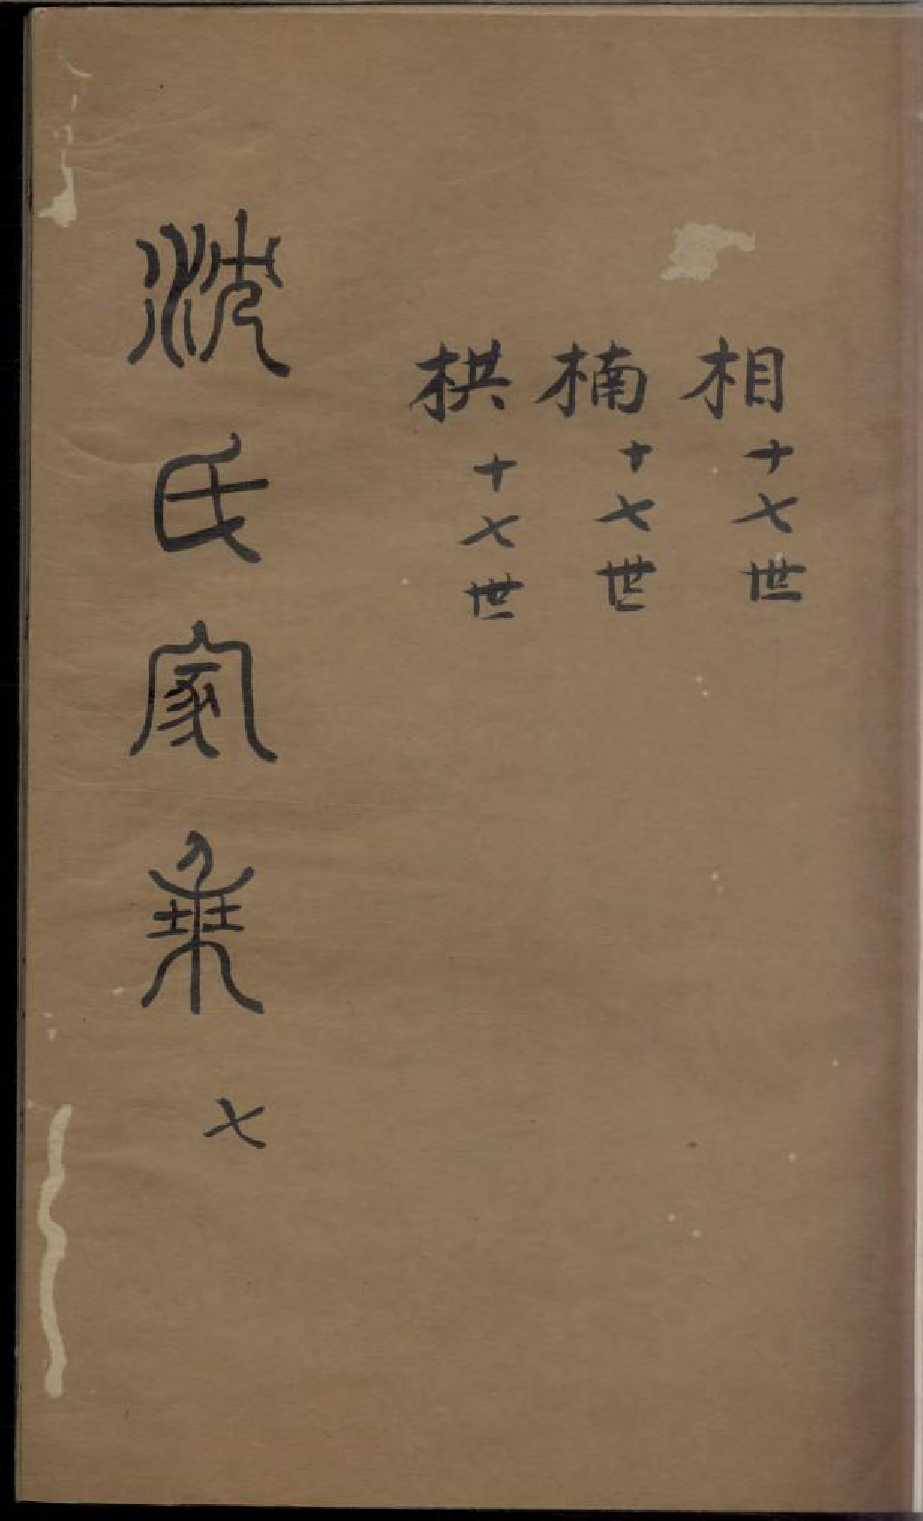 相十七世
楠十七世
栱十七世
沈氏家乗七